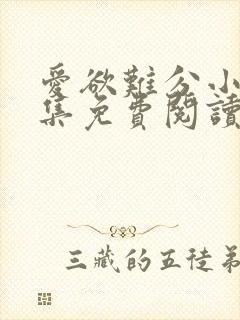 愛欲難分小
集免費閱讀
三藏的五徒弟